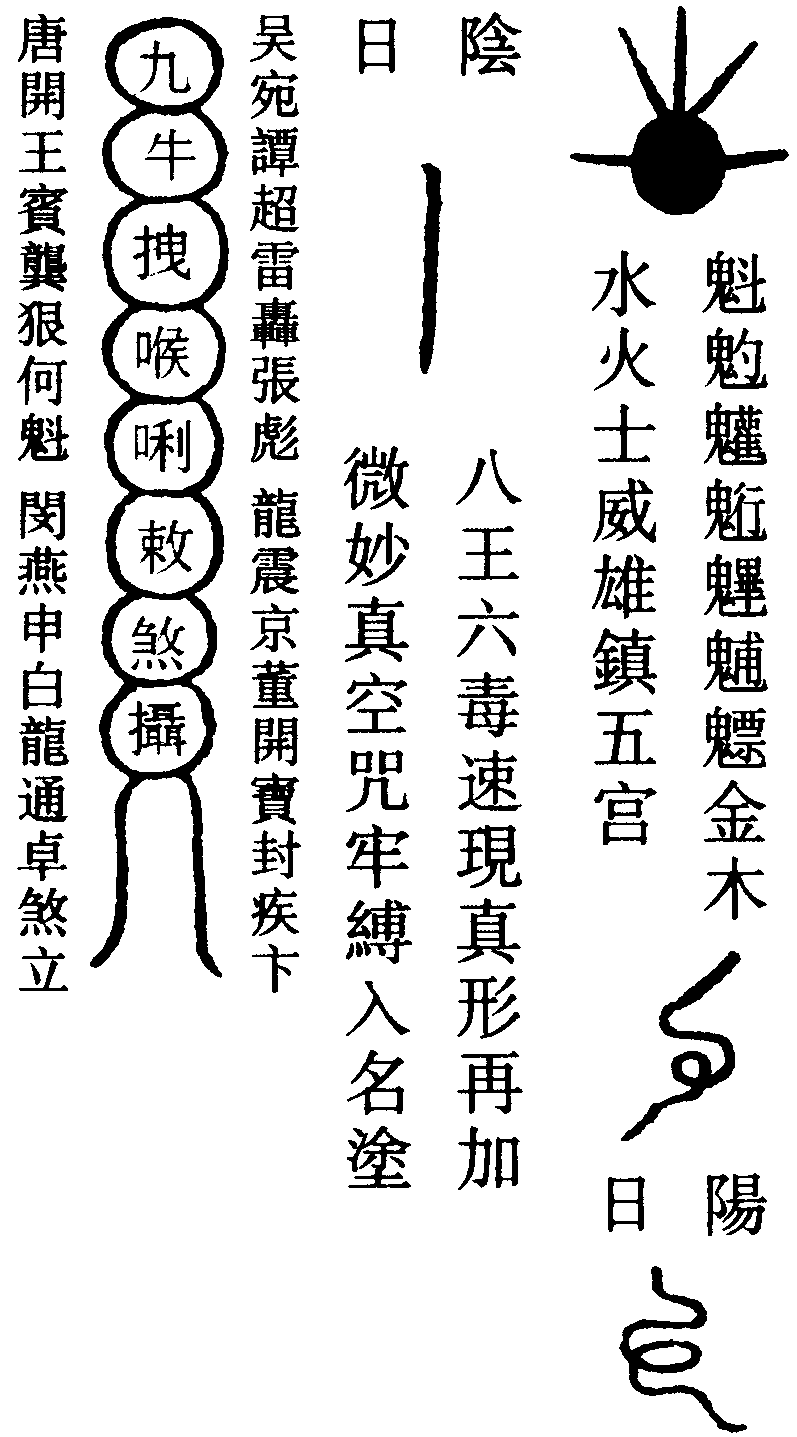 魁𩲃𩵄䰢魓𩳐魒金木
水火士威雄鎮五宫
陽
日
陰
日
八王六毒速現真形再加
微妙真空咒牢縛入名塗
吴宛譚超雷轟張彪 龍震京董開寶封疾卞
九牛拽喉唎敕煞攝
唐開王賓龔狠何魁 閔燕申白龍通卓煞立